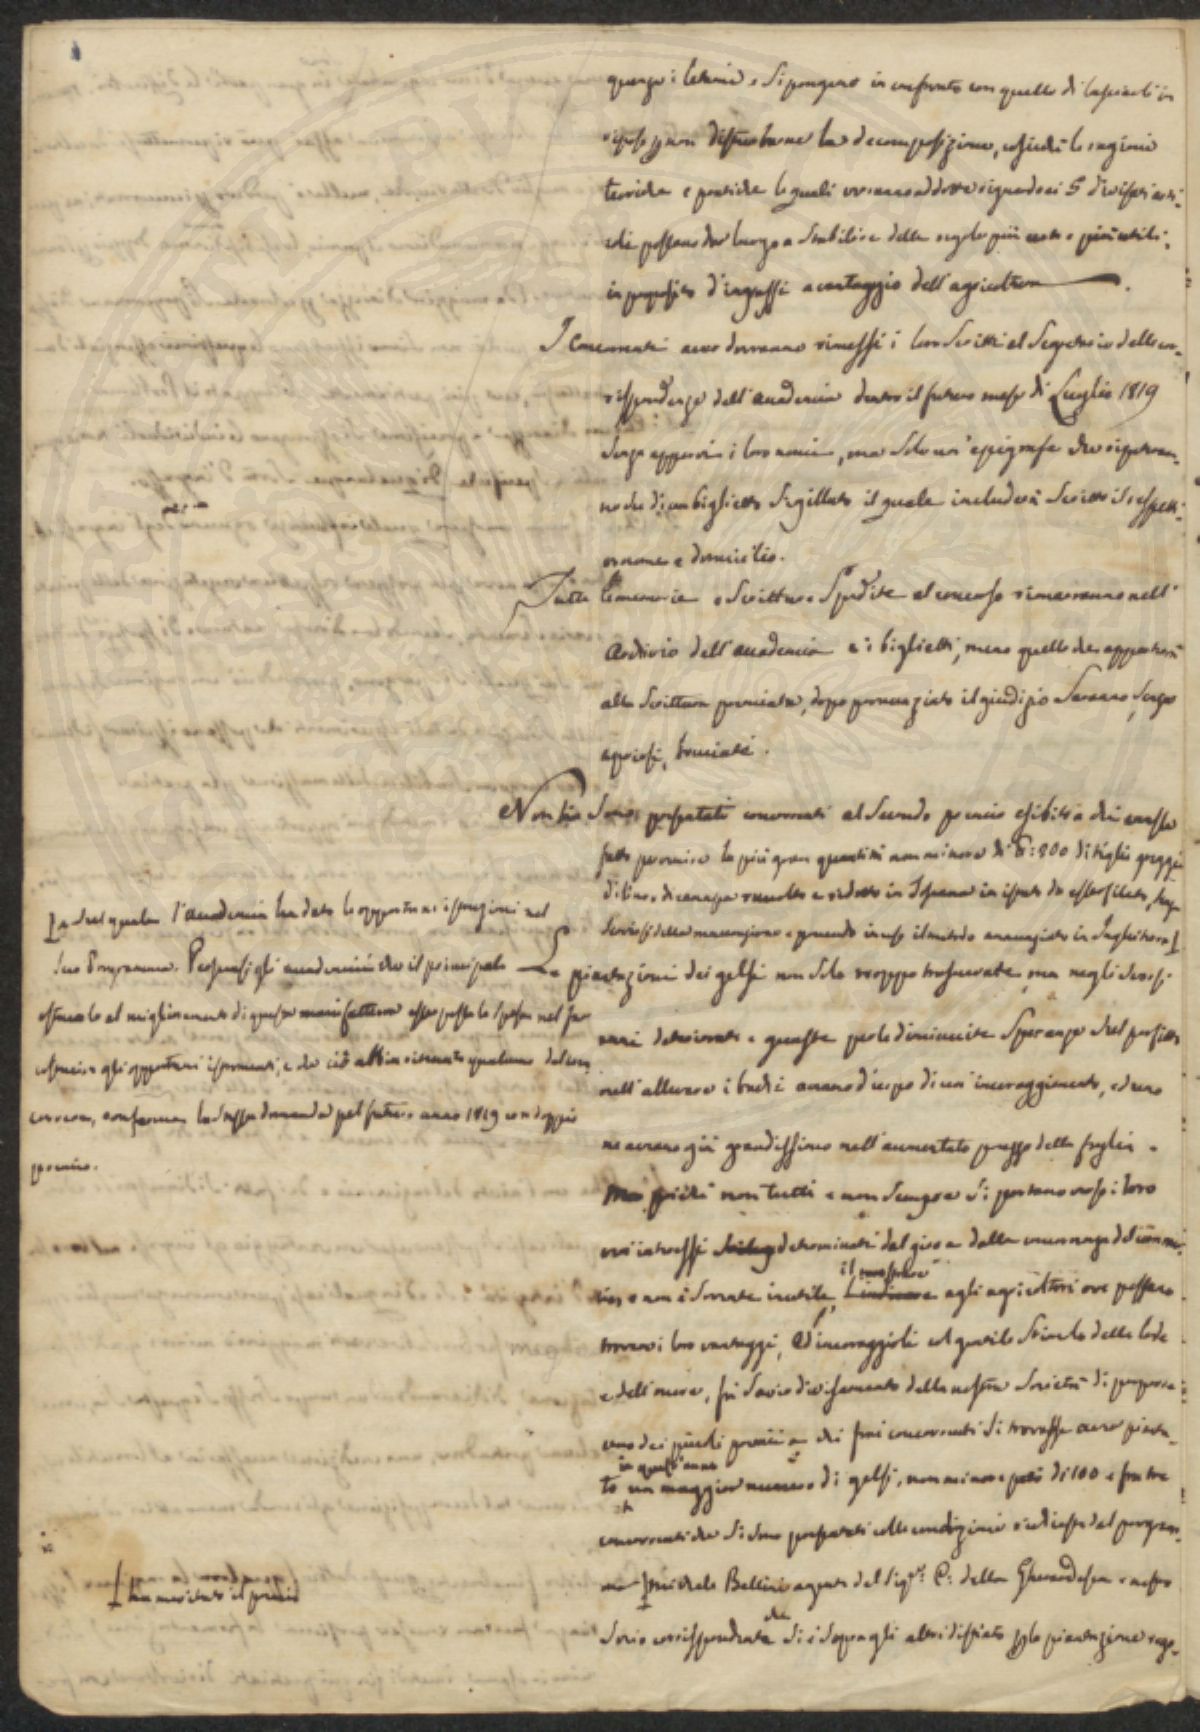 i letami e si pongano in confronto con quello di lasciarli in
riposo per non disturbarne la decomposizione, cosicchè le ragioni
teoriche e pratiche le quali verranno addotte riguardo ai 5 divisati arti-
coli possano dar luogo a stabilire delle regole più certe e più utili
in proposito d'ingrassi a vantaggio dell'agricoltura.
I Concorrenti aver dovranno rimessi i loro Scritti al Segretario delle cor-
rispondenze dell'accademia dentro il futuro mese di Luglio 1819
senza apporvi i loro nomi, ma solo un'epigrafe che ripeteran-
no al di un biglietto Sigillato il quale includerà Scritto il respetti-
vo nome e domicilio.
Tutte le memorie e Scritture Spedite al concorso rimarranno nell'
Archivio dell'accademia e i biglietti, meno quello che apparterrà
alla Scrittura premiata, dopo pronunziato il giudizio Saranno, Senza
aprirsi, bruciati.
Non si sono presentati concorrenti al Secondo premio esibito a chi avesse
fatto pervenire la più gran quantità non minore di 800 di tiglio greggio
di lino, o di canapa raccolto e ridotto in Toscana in istato da esser filato, senza
servirsi della macerazione e ponendo in uso il metodo annunziato in Inghilterra
sul quale l'accademia ha dato le opportune istruzioni nel
suo Programma. Persuasi gli accademici che il principale
ostacolo al miglioramento di questa manifattura esser possa la spesa nel far
costruire gli opportuni istrumenti, e che ciò abbia ritenuto qualcuno dal con-
correre, confermano la stessa domanda pel futuro anno 1819 con doppio
premio.
Le piantazioni dei gelsi non solo troppo trascurate, ma negli scorsi
anni deteriorate e guaste per le diminuite Speranze del profitto
nell'allevare i bachi avevano d'uopo di un incoraggimento, ed uno
ne avevano già grandissimo nell'aumentato prezzo della foglia.
Ma poichè non tutti e non sempre si portano verso i loro
veri interessi determinati dal giro e dalla del commer-
cio, e non è Sovente inutile, il mostrare agli agricoltori ove possano
trovare i loro vantaggi, ed incoraggirli col gentile Stimolo della lode
e dell'onore, fu Savio divisamento della nostra Società di proporre
uno dei piccoli premii a chi fra i concorrenti si trovasse aver pianta-
to in quest'anno un maggior numero di gelsi, non minore però di 100 e fra tre
concorrenti che si sono presentati colle condizioni richieste dal program-
ma Michele Bellini agente del Sig.r C: della Gherardesca e nostro
Socio corrispondente che si è Sopra gli altri distinto per la piantazione
ha meritato il premio